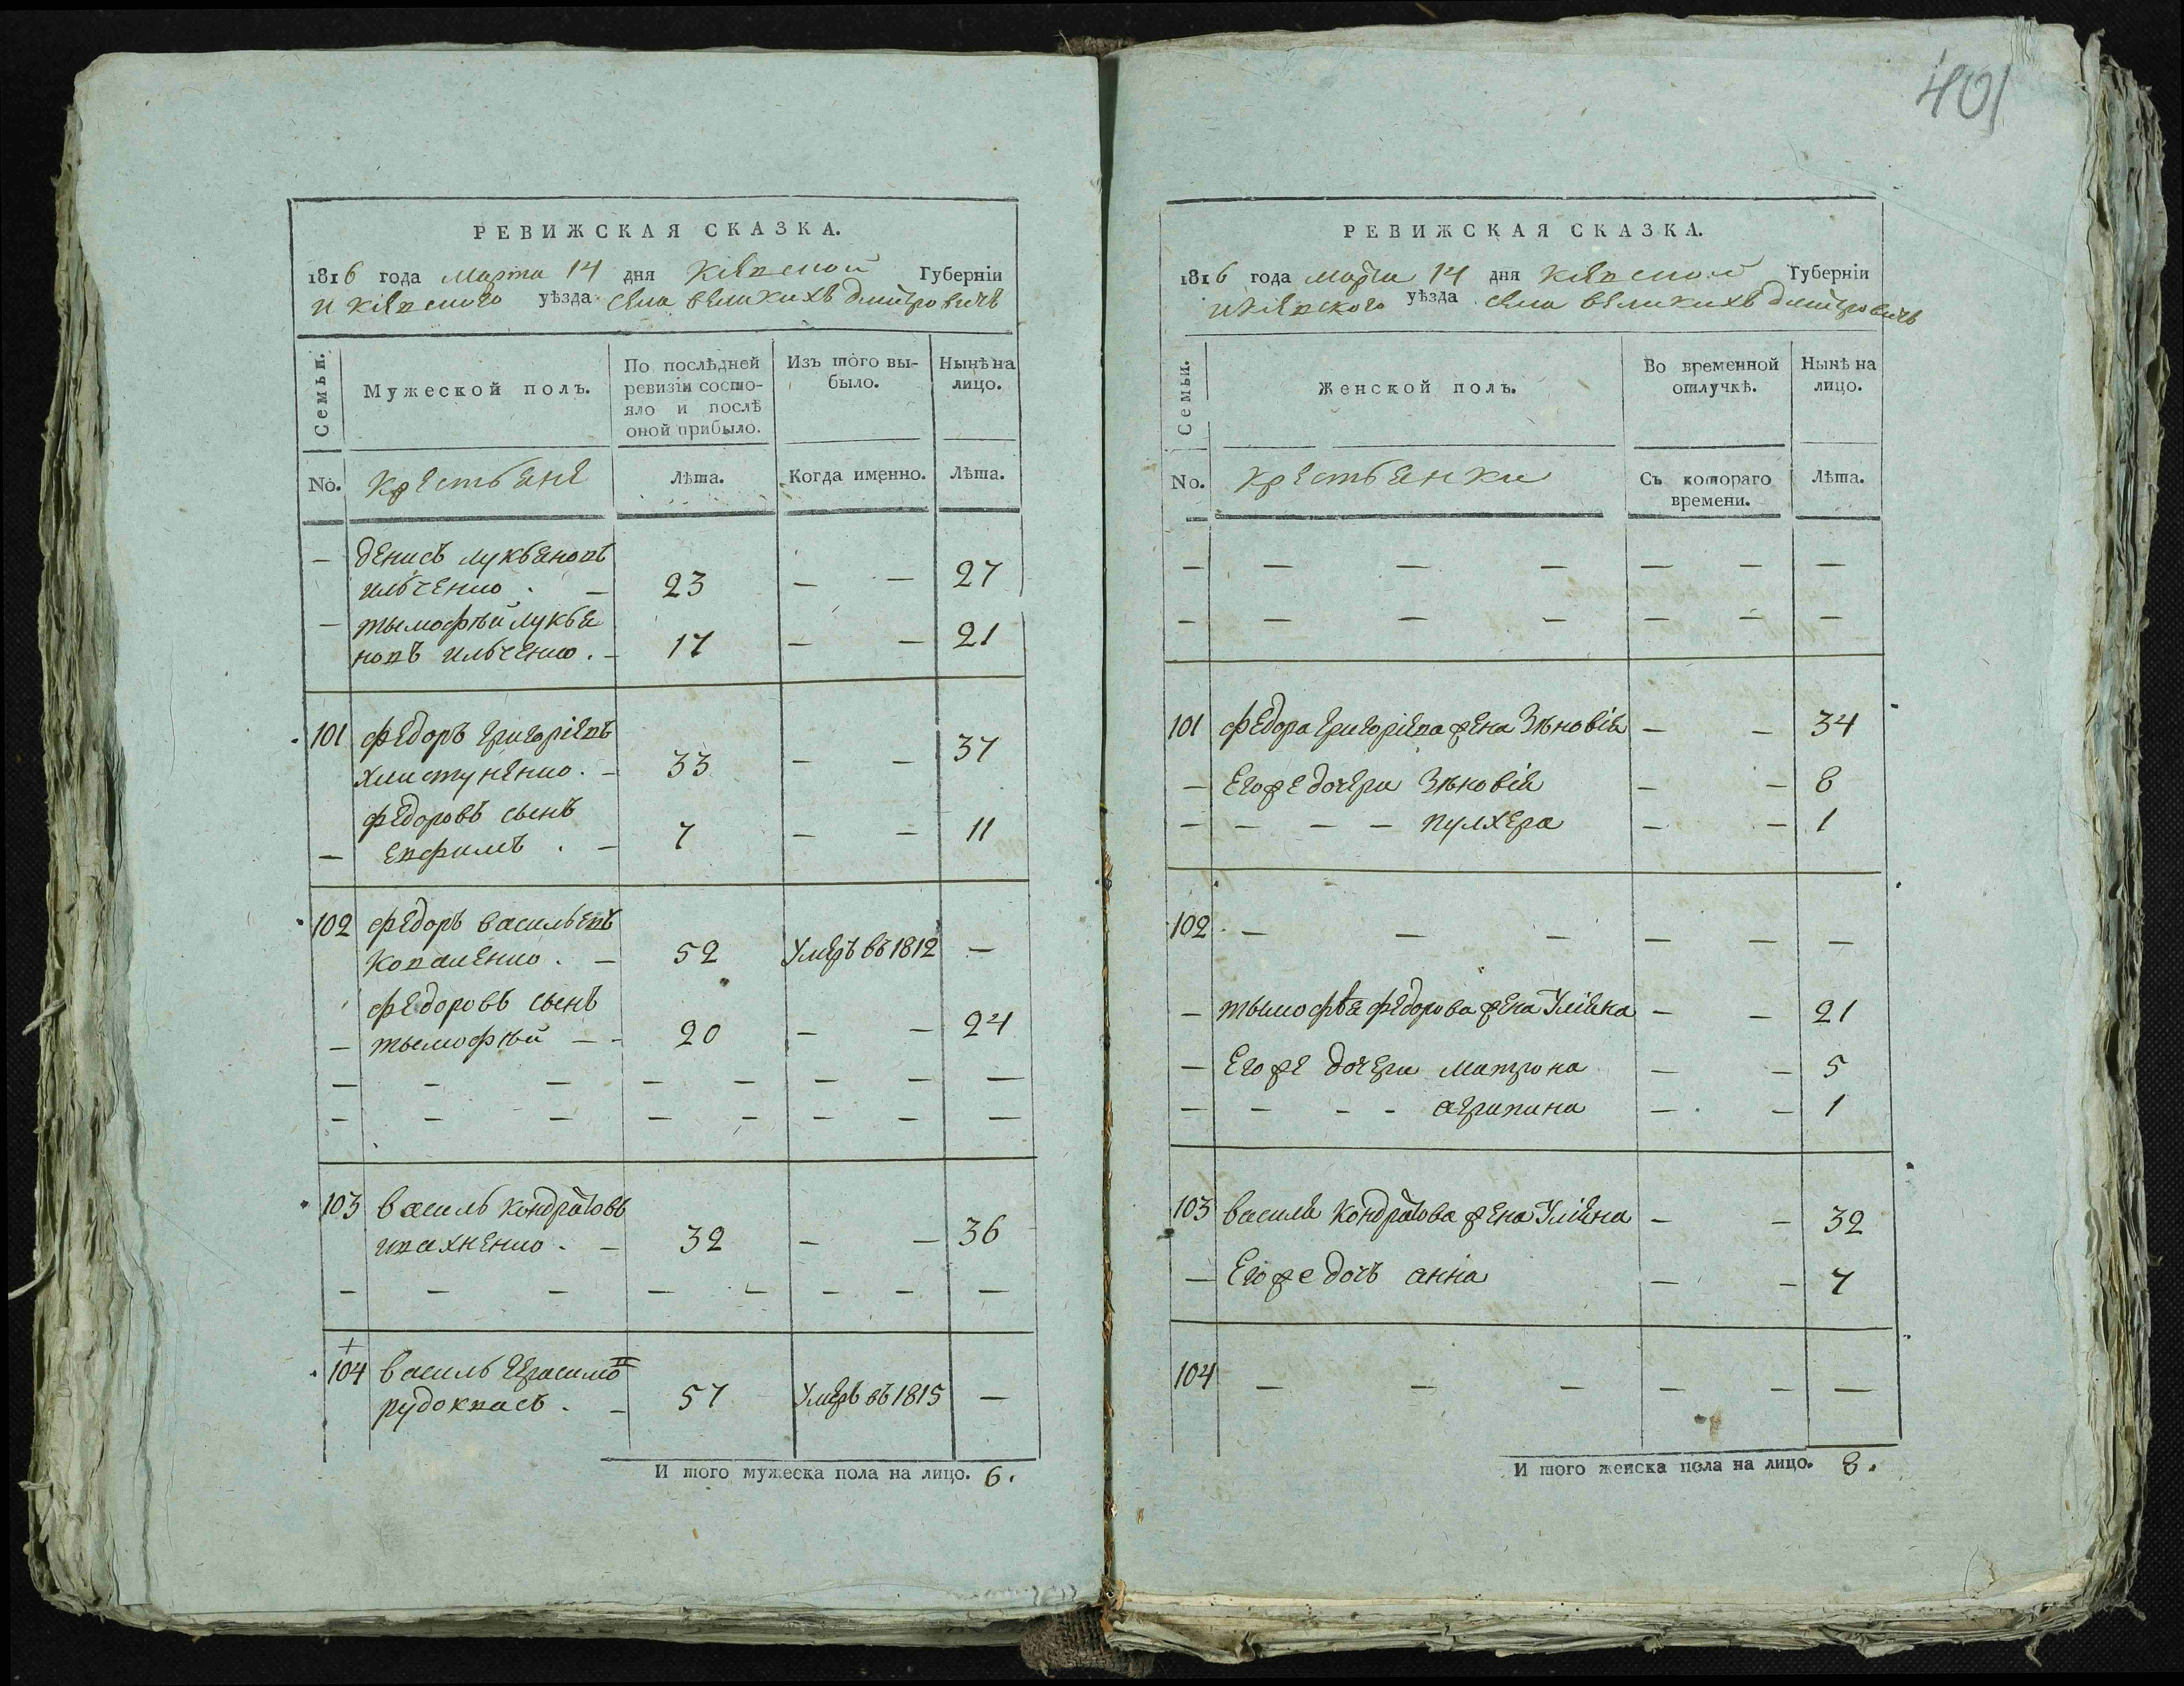 РЕВИЖСКАЯ СКАЗКА.
1816 года Марта 14 дня Кіевской Губерніи
и Кіевского уѣзда села великихъ дмитровичъ
Семьи.
Мужеской полъ.
По послѣдней
ревизіи состо-
яло и послѣ
оной прибыло.
Изъ того вы-
было.
Нынѣ на
лицо.
No. Крестьяне Лѣта. Когда именно. Лѣта.
— денисъ лукьяновъ
ильченко . — 23 — — 27
— тымофѣй лукья
новъ ильченко . — 17 — — 21
101 федоръ григоріевъ
хлистуненко . — 33 — — 37
федоровъ сынъ
— евфимъ . — 7 — — 11
102 федоръ васильевъ
коваленко . — 52 Умеръ въ 1812 —
федоровъ сынъ
— тымофѣй — - 20 — — 24
— - — — — — — —
— - — — — — — —
103 василь кондратовъ
ивахненко . — 32 — — 36
— — — — — — — —
104 василь герасимо
рудоквасъ . — 57 Умеръ въ 1815 —
И того мужеска пола на лицо. 6.
401
РЕВИЖСКАЯ СКАЗКА.
1816 года марта 14 дня Кіевской Губерніи
и Кіевского уѣзда села великихъ дмитровичъ
Семьи.
Женской полъ.
Во временной
отлучкѣ.
Нынѣ на
лицо.
No. Крестьянки Съ котораго
времени. Лѣта.
— — — — — — —
— — — — — — —
101 федора григоріева жена Зѣновія — — 34
— Его же дочери Зѣновія — — 8
— — — — пулхера — — 1
102 — — — — — —
— тымофѣя федорова жена Уліяна — — 21
— Его же дочери матрона — — 5
— — - - агрипина — — 1
103 василя кондратова жена Уліяна — — 32
— Его же дочъ анна — — 7
104 — — — — — —
И того женска пола на лицо. 8.